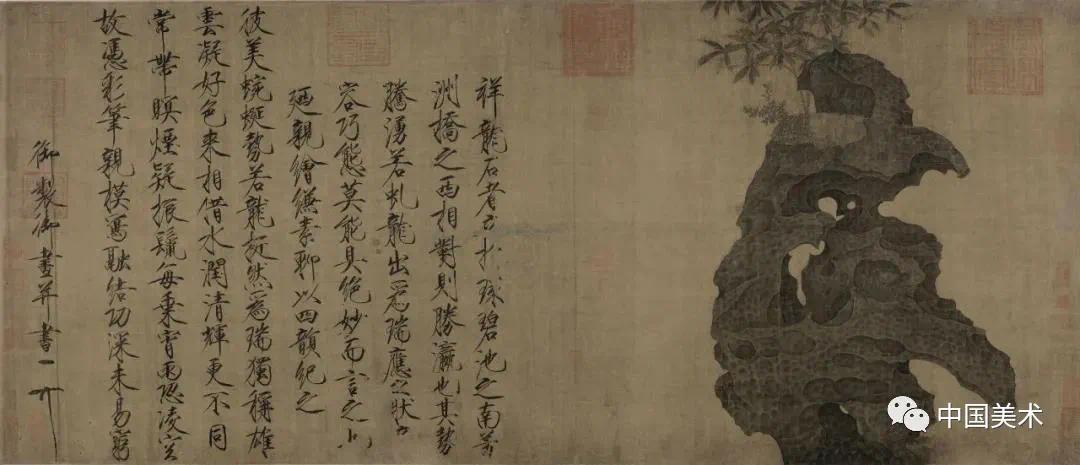 祥龍石者立於環碧池之南芳
洲橋之西相對則勝瀛也其勢
騰湧若虬龍出爲瑞應之狀奇
容巧態莫能具絶妙而言之也
廼親繪縑素聊以四韻紀之
彼美蜿蜒勢若龍挺然爲瑞獨稱雄
雲凝好色来相借水潤清輝更不同
常帶暝煙疑振鬣每乘宵雨恐凌空
故憑彩筆親模寫融结功深未易窮
御製御畫并書
中国美术